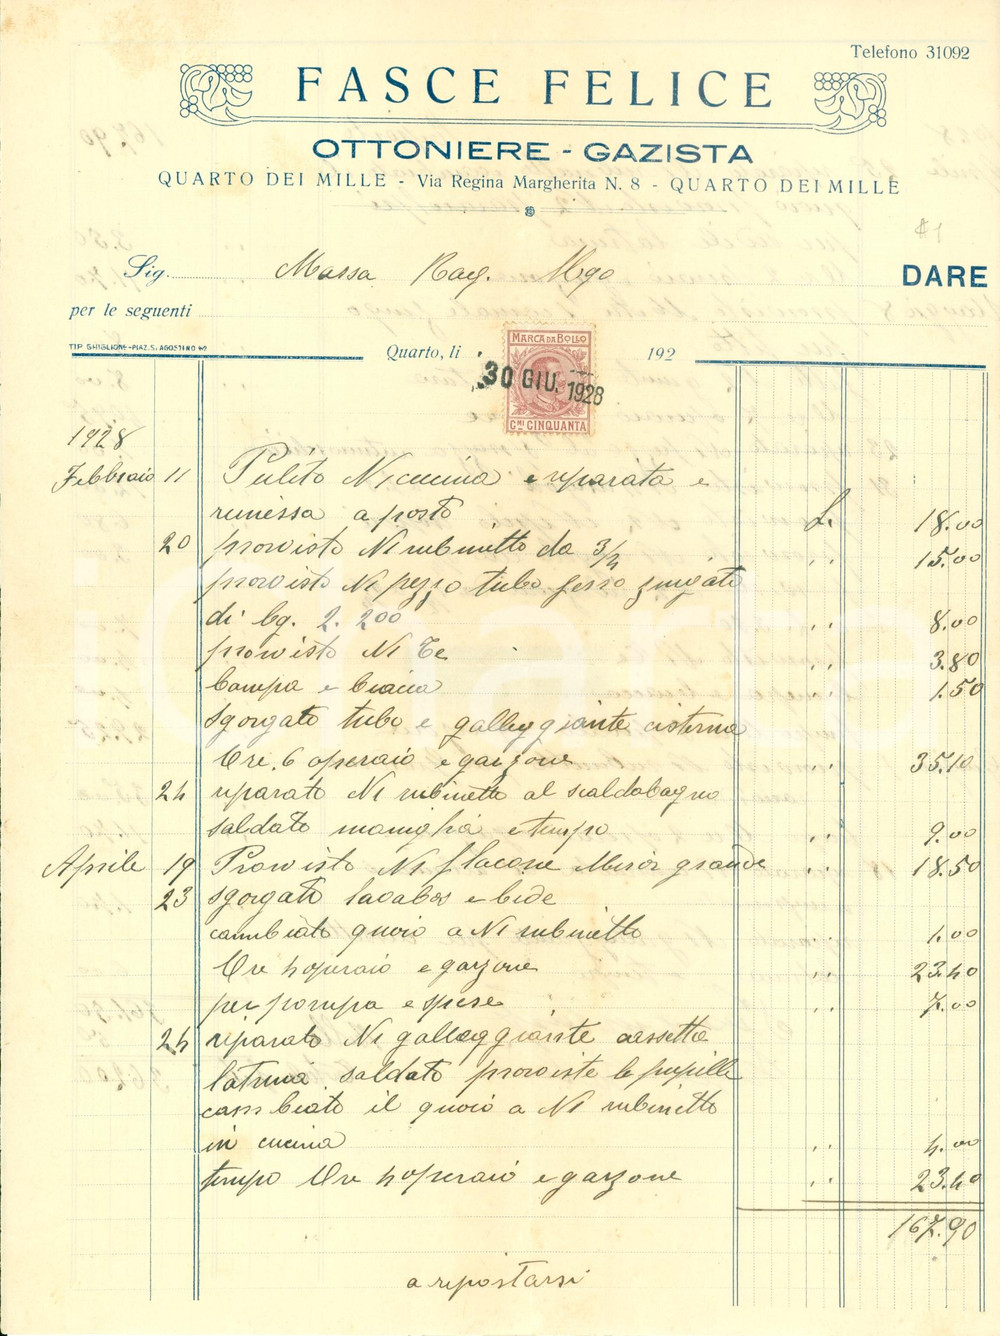 Telefono 31092
FASCE FELICE
OTTONIERE - GAZISTA
QUARTO DEI MILLE - Via Regina Margherita N. 8 - QUARTO DEI MILLE
#1
Sig. Massa Rag. Ugo
DARE
per le seguenti
TIP GHIGLIONE - PIAZ. S. AGOSTINO
Quarto, li 192
MARCA DA BOLLO
30 GIU. 1928
CMI CINQUANTA
1928
Febbraio 11 Pulito N1 cucina e riparata e
rimessa a posto £. 18.00
20 provvisto N1 rubinetto da 3/4 15.00
provvisto N1 pezzo tubo ferro zingato
di kg. 2.200 8.00
provvisto N1 Te 3.80
Canapa e biacca 1.50
sgorgato tubo e galleggiante cisterna
Ore 6 operaio e garzone 35.10
24 riparato N1 rubinetto al scaldabagno
saldato maniglia e tempo 9.00
Aprile 19 Provvisto N1 flacone Mirór grande 18.50
23 sgorgato lavabos e bide
cambiato quoio a N1 rubinetto 1.00
Ore 4 operaio e garzone 23.40
per pompa e spese 7.00
24 riparato N1 galleggiante cassetta
latrina saldato provviste le pupille
cambiato il quoio a N1 rubinetto
in cucina 4.00
tempo Ore 4 operaio e garzone 23.40
167.90
a ripostarsi